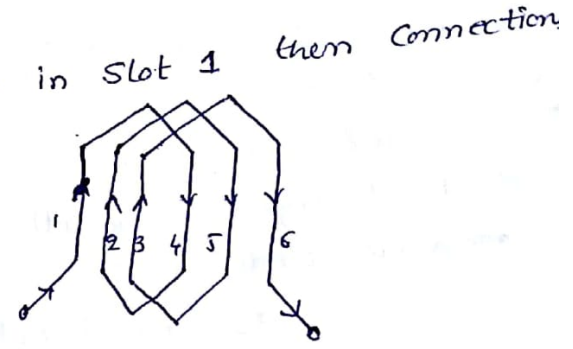 in Slot 1 then Connection
1 2 3 4 5 6